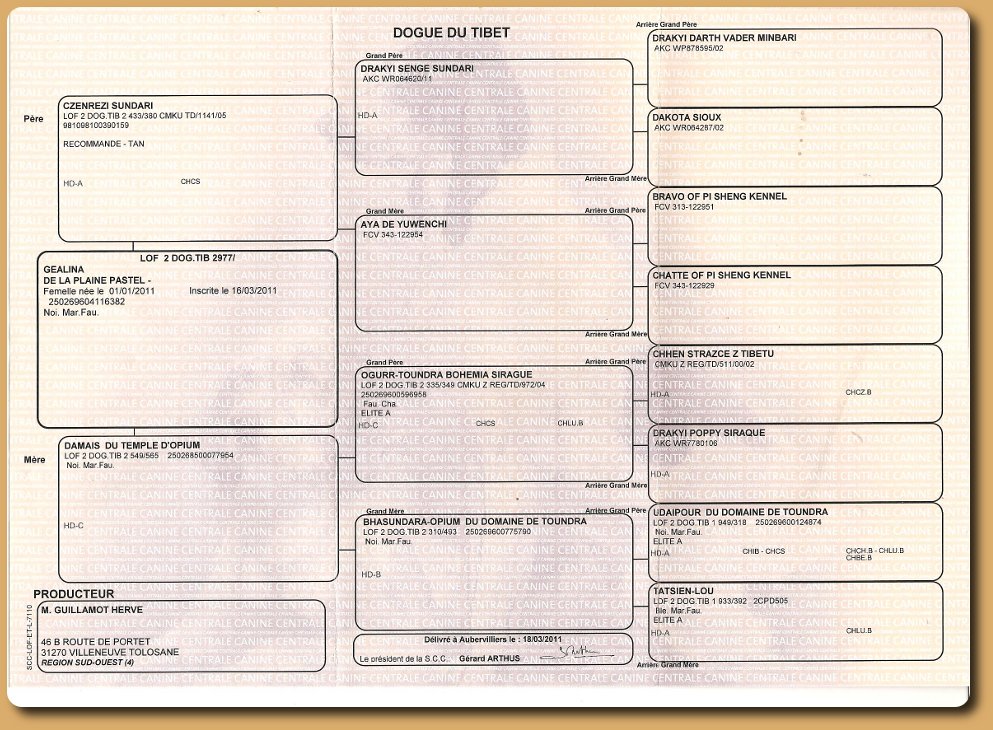 DOGUE DU TIBET
Père
CZENREZI SUNDARI
LOF 2 DOG.TIB 2 433/380 CMKU TD/1141/05
981098100390159
RECOMMANDE - TAN
HD-A CHCS
LOF 2 DOG.TIB 2977/
GEALINA
DE LA PLAINE PASTEL -
Femelle née le 01/01/2011 Inscrite le 16/03/2011
250269604116382
Noi. Mar.Fau.
Mère
DAMAIS DU TEMPLE D'OPIUM
LOF 2 DOG.TIB 2 549/565 250268500077954
Noi. Mar.Fau.
HD-C
PRODUCTEUR
M. GUILLAMOT HERVE
46 B ROUTE DE PORTET
31270 VILLENEUVE TOLOSANE
REGION SUD-OUEST (4)
SCC-LOF-ET-L-7110
Grand Père
DRAKYI SENGE SUNDARI
AKC WR064620/11
HD-A
Grand Mère
AYA DE YUWENCHI
FCV 343-122954
Grand Père
OGURR-TOUNDRA BOHEMIA SIRAGUE
LOF 2 DOG.TIB 2 335/349 CMKU Z REG/TD/972/04
250269600596958
Fau. Cha.
ELITE A
HD-C CHCS CHLU.B
Grand Mère
BHASUNDARA-OPIUM DU DOMAINE DE TOUNDRA
LOF 2 DOG.TIB 2 310/493 250269600775790
Noi. Mar.Fau.
HD-B
Délivré à Aubervilliers le : 18/03/2011
Le président de la S.C.C. Gérard ARTHUS
Arrière Grand Père
DRAKYI DARTH VADER MINBARI
AKC WP878595/02
DAKOTA SIOUX
AKC WR064287/02
Arrière Grand Mère
Arrière Grand Père
BRAVO OF PI SHENG KENNEL
FCV 313-122951
CHATTE OF PI SHENG KENNEL
FCV 343-122929
Arrière Grand Mère
Arrière Grand Père
CHHEN STRAZCE Z TIBETU
CMKU Z REG/TD/511/00/02
HD-A CHCZ.B
DRAKYI POPPY SIRAQUE
AKC WR7780106
HD-A
Arrière Grand Mère
Arrière Grand Père
UDAIPOUR DU DOMAINE DE TOUNDRA
LOF 2 DOG.TIB 1 949/318 250269600124874
Noi. Mar.Fau.
ELITE A
HD-A CHIB - CHCS CHCH.B - CHLU.B
CHBE.B
TATSIEN-LOU
LOF 2 DOG.TIB 1 933/392 2CPD505
Ble. Mar.Fau.
ELITE A
HD-A CHLU.B
Arrière Grand Mère